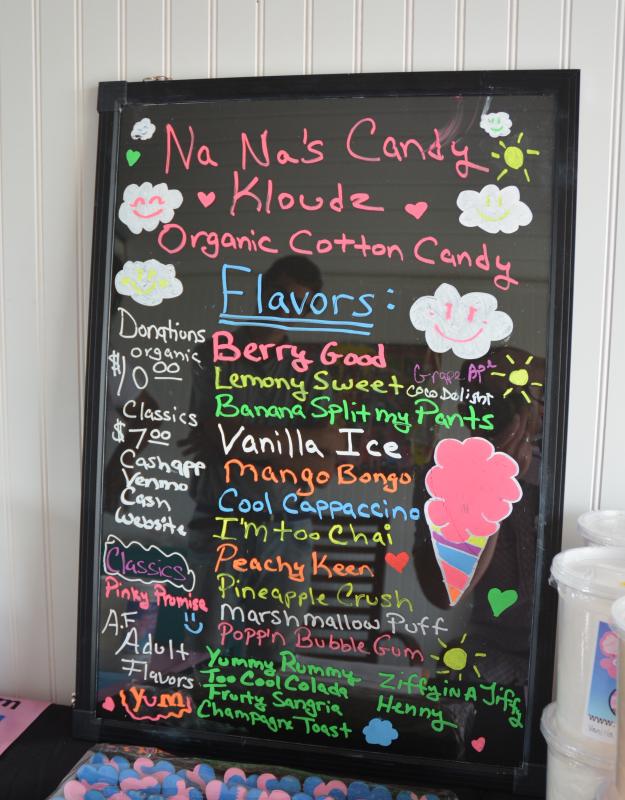 Na Na's Candy
Kloudz
Organic Cotton Candy
Flavors:
Donations
organic
$10.00
Classics
$7.00
Cashapp
Venmo
Cash
Website
Classics
Pinky Promise
A.F.
Adult
Flavors
Yum
Berry Good
Lemony Sweet
Grape Ape
Coco Delight
Banana Split my Pants
Vanilla Ice
Mango Bongo
Cool Cappaccino
I'm too Chai
Peachy Keen
Pineapple Crush
Marshmallow Puff
Popp'n Bubble Gum
Yummy Rummy
Too Cool Colada
Fruity Sangria
Champagne Toast
Ziffy in A Jiffy
Henny
www.
Vanilla